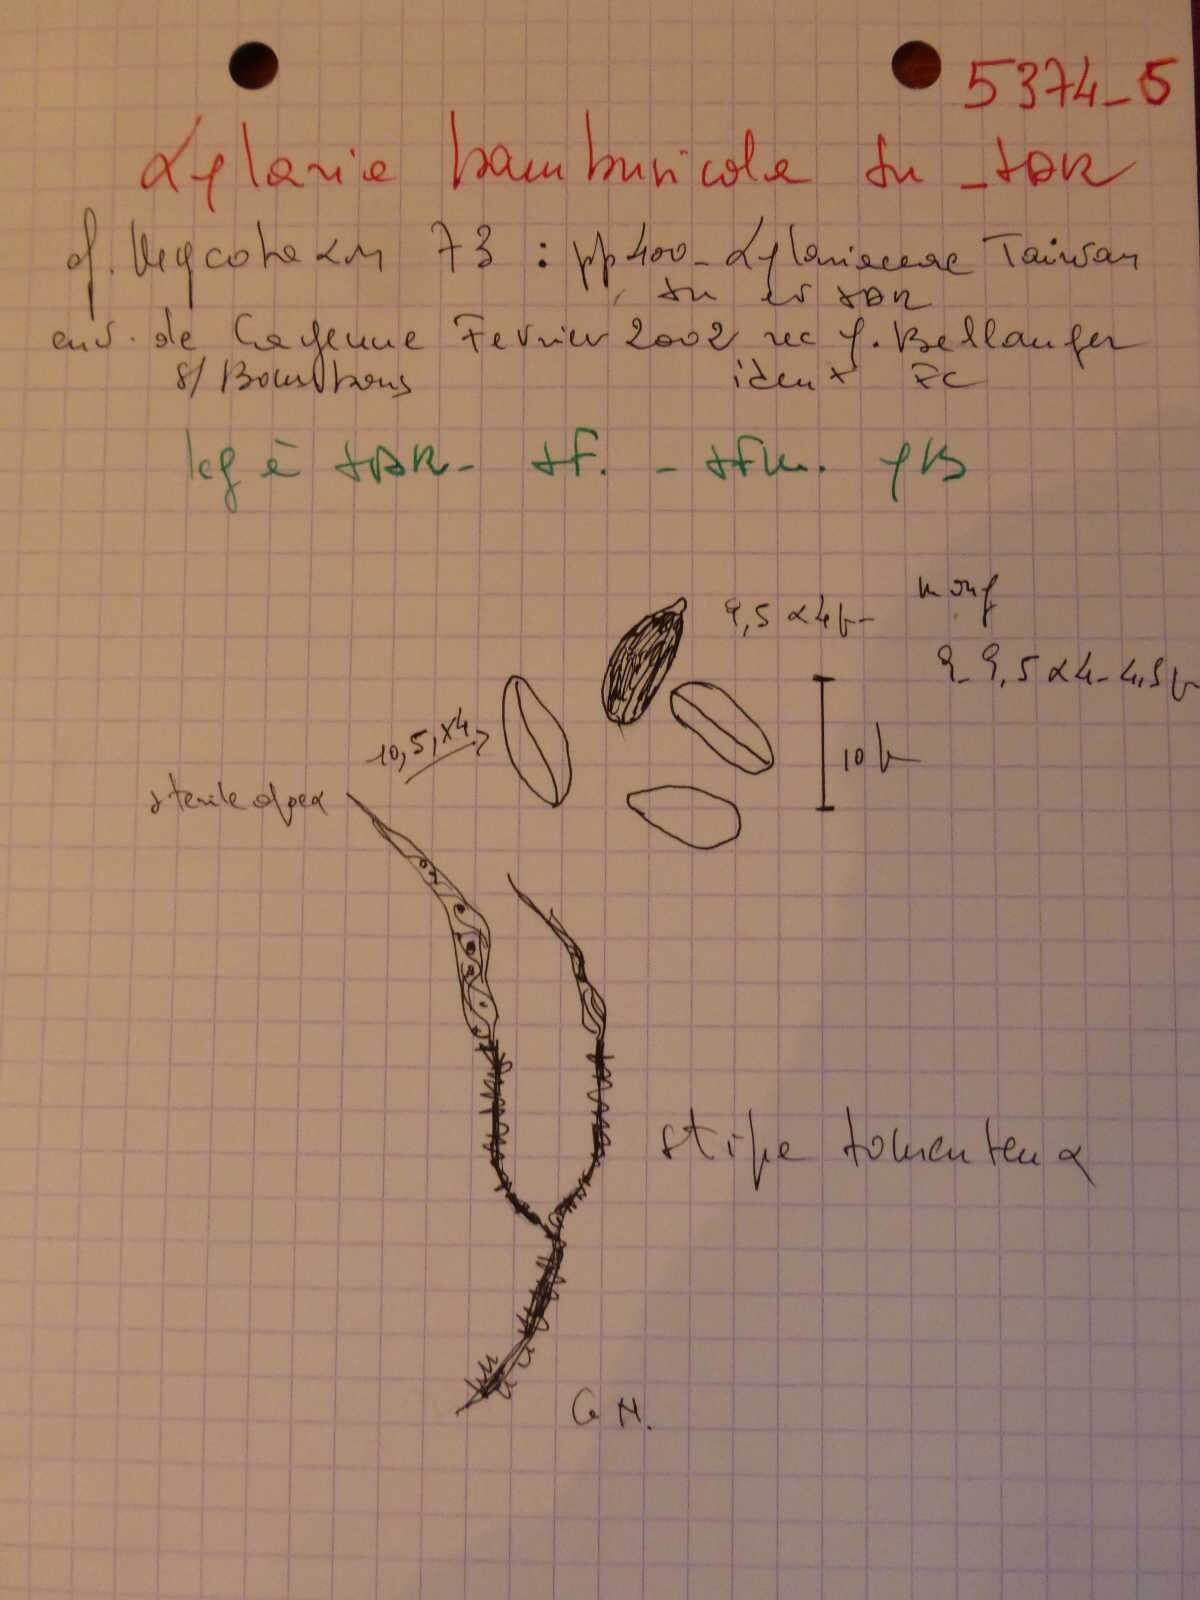 5374-5
Xylaria bambusicola Ju - JDR
cf. Mycotaxon 73: pp400- Xylariaceae Taiwan
Ju et JDR
env. de Cayenne Fevrier 2002 rec Y. Bellanger
s/ Bambous ident FC
leg à JDR-
9,5 x 4 µ
moy
9-9,5 x 4-4,5 µ
10,5 x 4
10 µ
sterile apex
stipe tomenteux
G N.